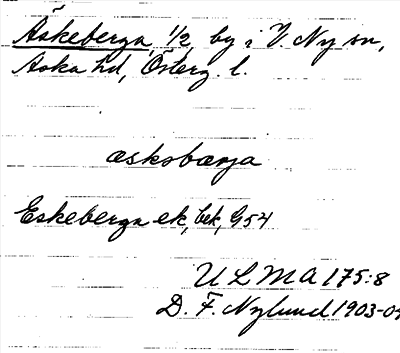 Äskeberga, 1/2 by i V. Ny sn,
Aska hd, Österg. l.
æskobærja
Eskeberga ek, bek, G54
ULMA 175:8
D. F. Nylund 1903-04